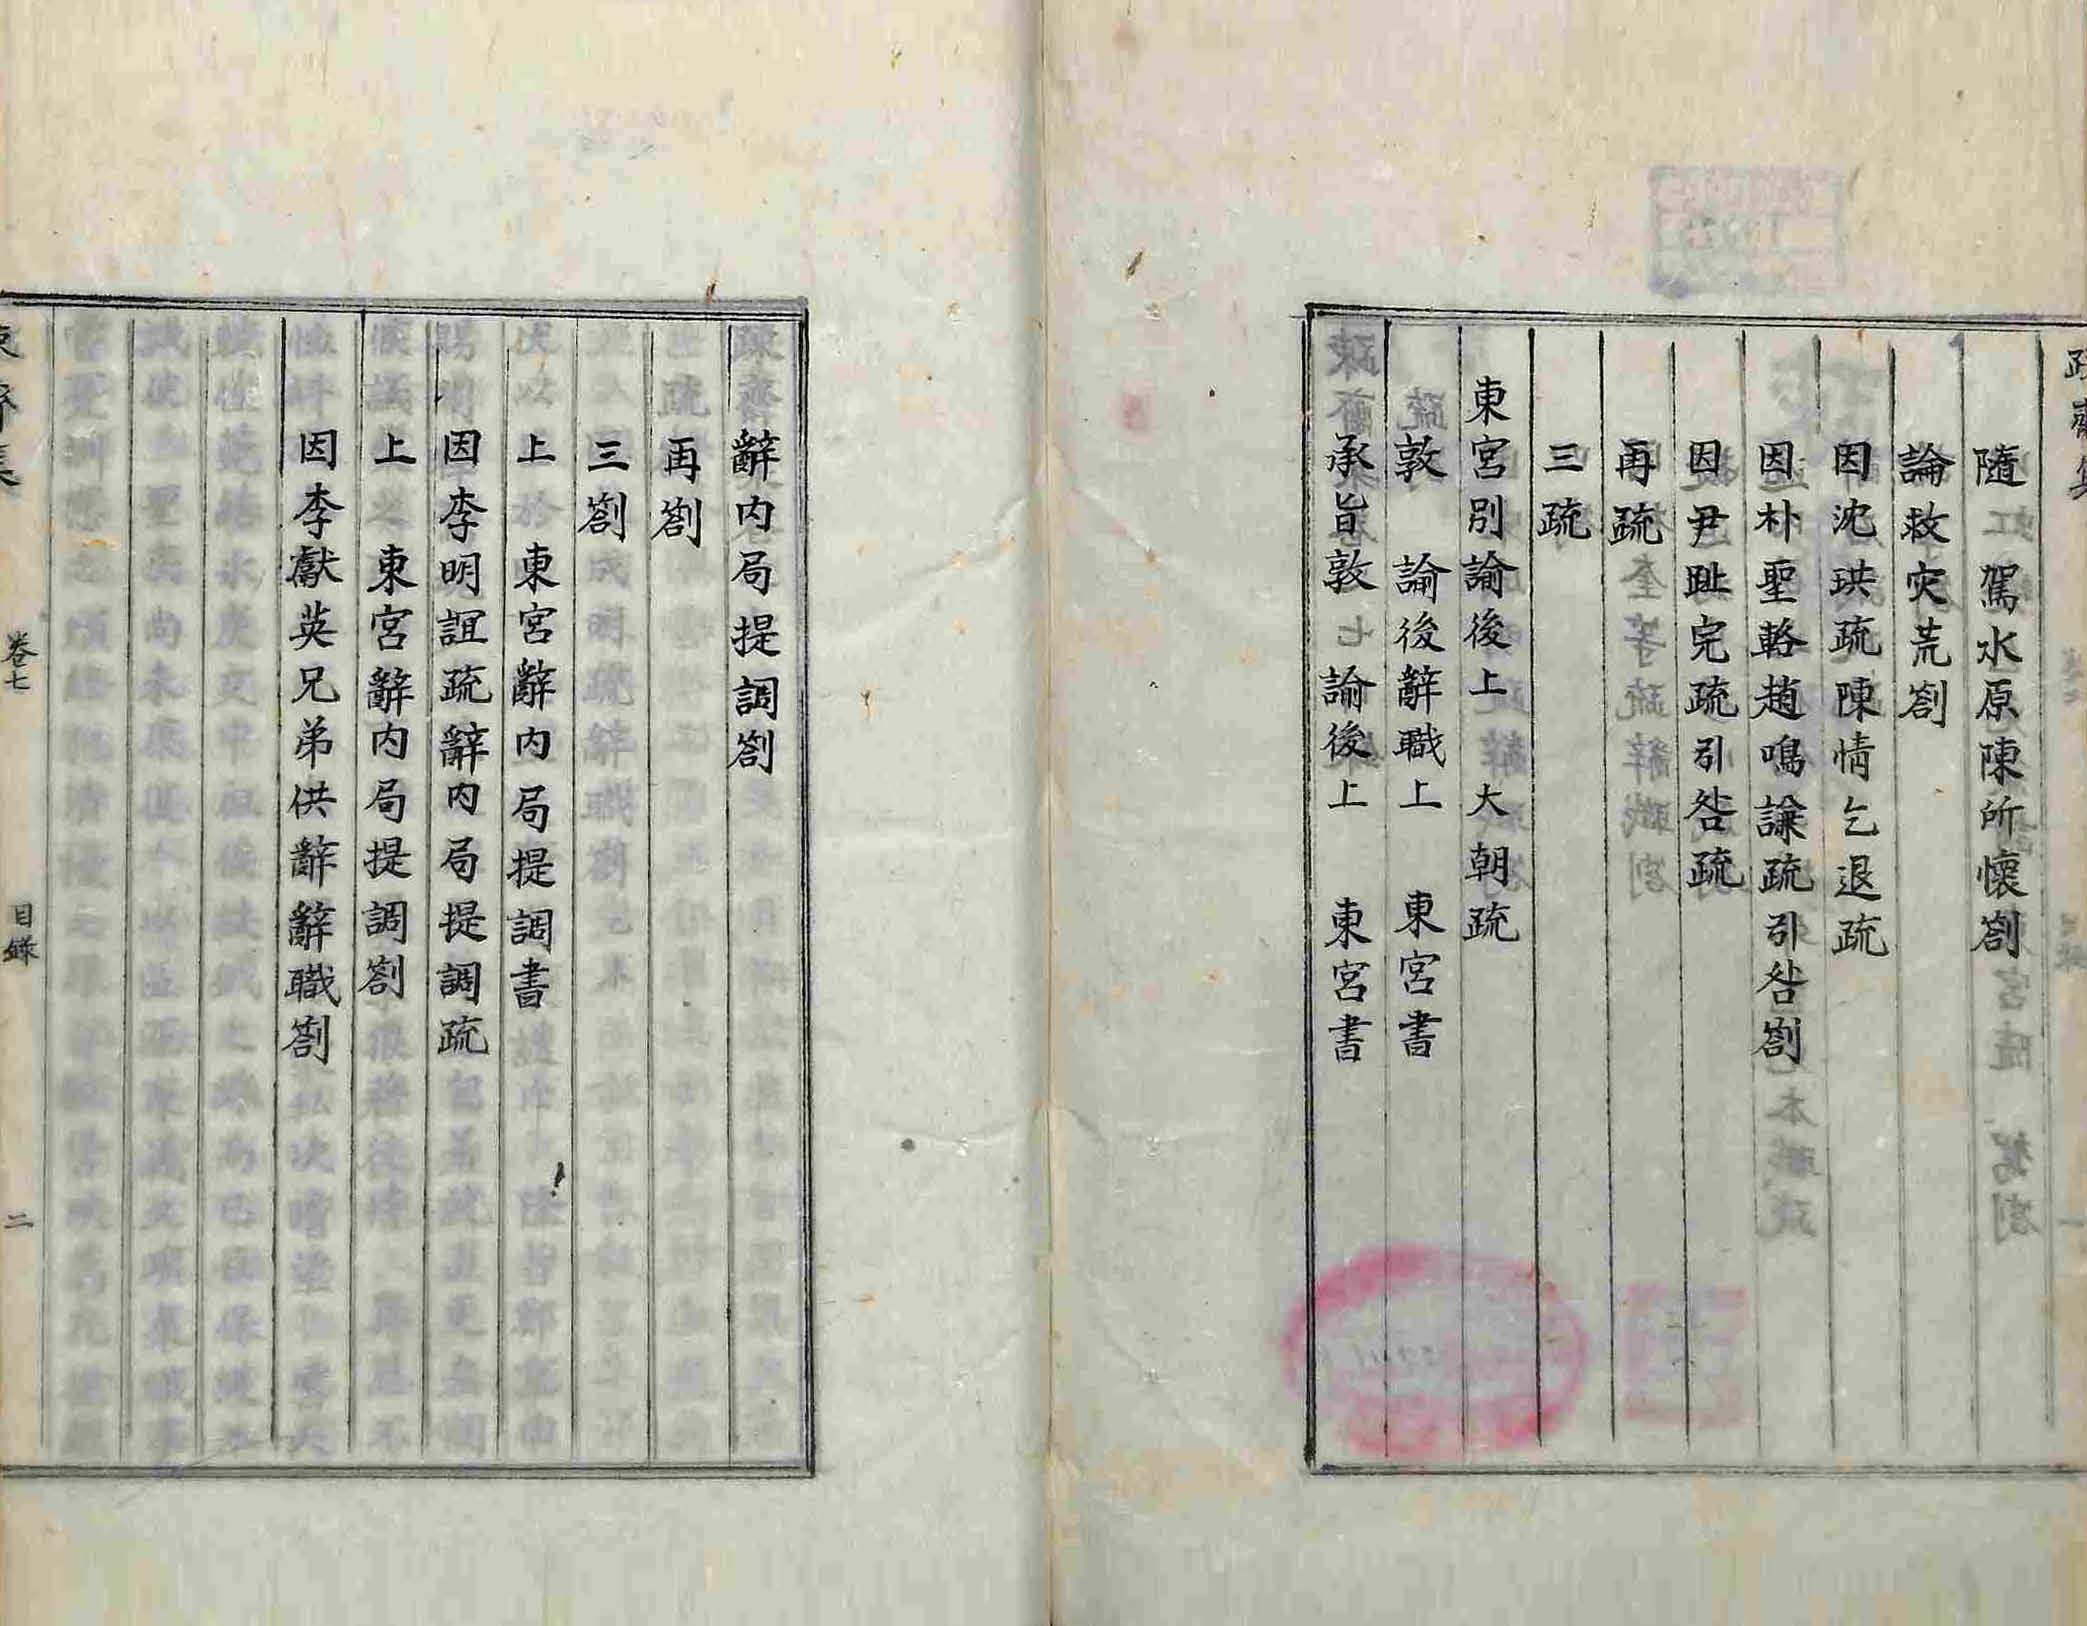 隨 駕水原陳所懷劄
論救灾荒劄
因沈珙疏陳情乞退疏
因朴聖輅趙鳴謙疏引咎劄
因尹趾完疏引咎疏
再疏
三疏
東宮別諭後上 大朝疏
敦 諭後辭職上 東宮書
承旨敦 諭後上 東宮書
辭内局提調劄
再劄
三劄
上 東宮辭内局提調書
因李明誼疏辭内局提調疏
上 東宮辭内局提調劄
因李獻英兄弟供辭辭職劄
卷七 目錄 二